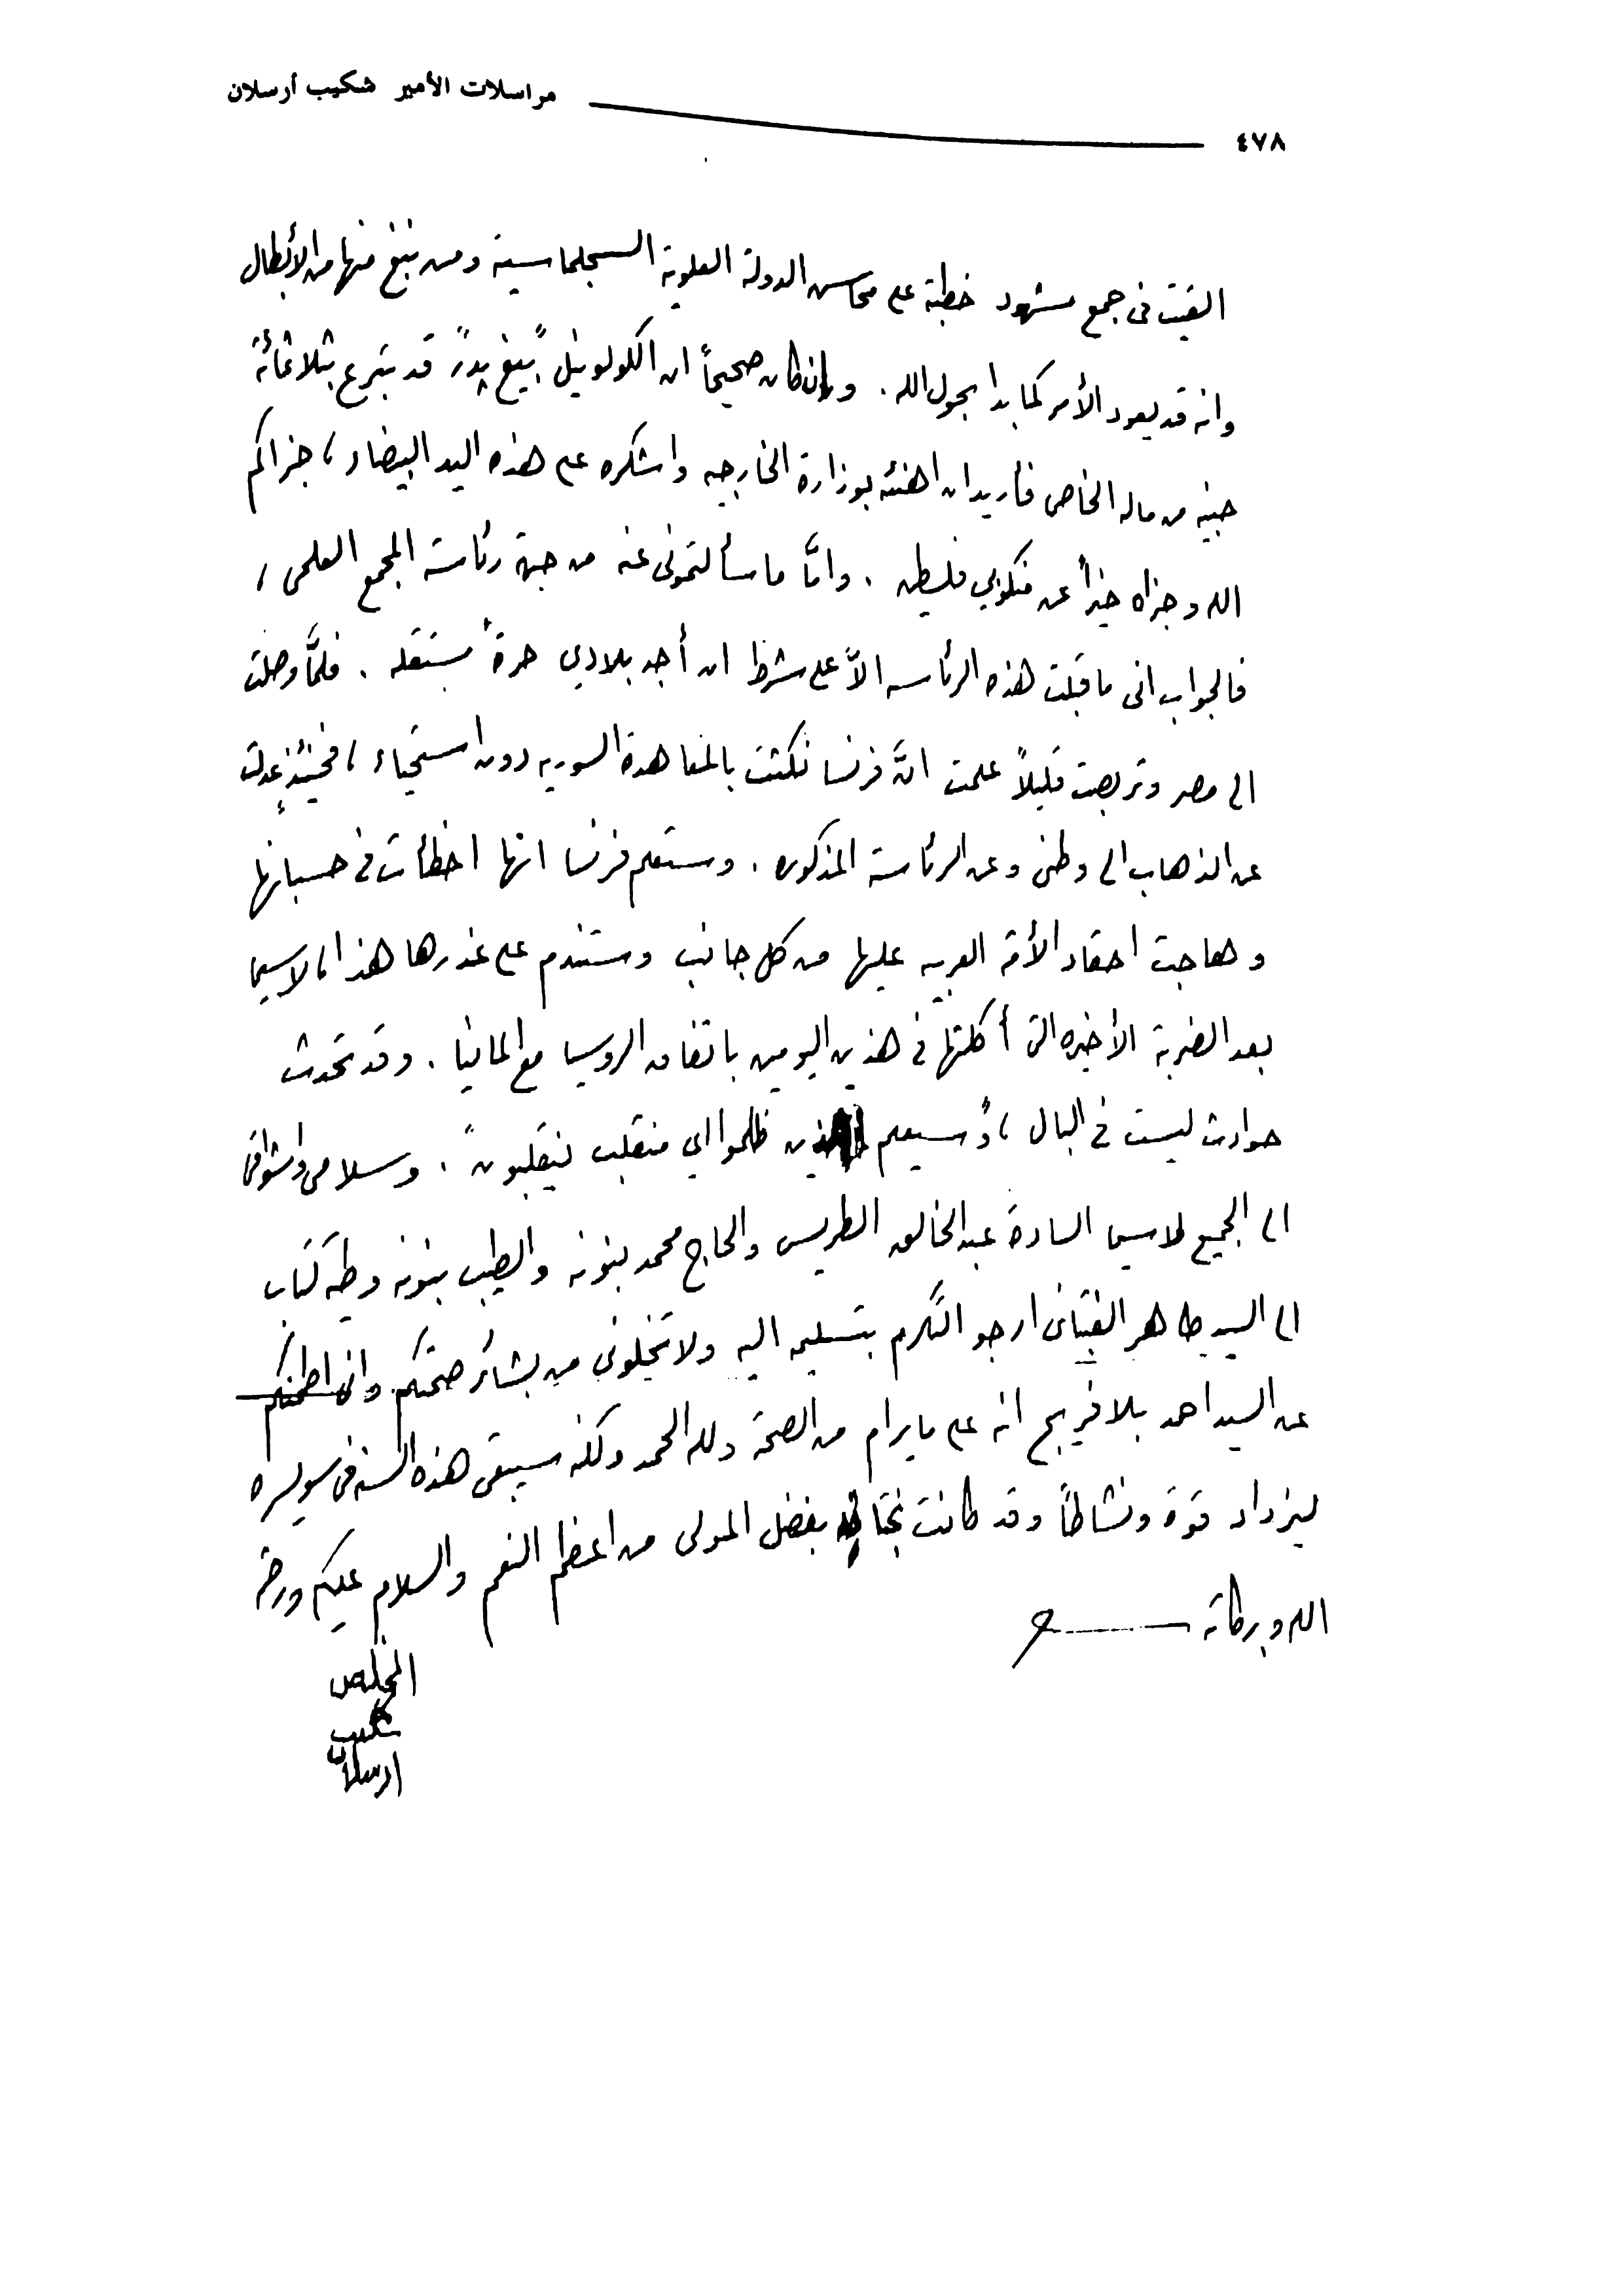 مراسلات الأمير شكيب أرسلان
٤٧٨
القيت فى جمع مشهود خطبة على محاسن الدولة العلوية السجلماسية ومن نبغ منها من الأبطال
وانه قد يعود الأمر كما بدا بحول الله . وإن كان صحيحاً ان الكولونيل "بيغ بدر" قد تبرع بثلاثمائة
جنيه من ماله الخاص فأريد ان اهنئه بوزارة الخارجيه واشكره على هذه اليد البيضاء ، جزاكم
الله وجزاه خيراً عن منكوبي فلسطين . وامَّا ما سألتمونى عنه من جهة رئاسة المجمع العلمى ،
فالجواب انى ما قبلت هذه الرئاسه الاَّ على شرط ان أجد بلادي حرةً مستقله . فلمَّا وصلت
الى مصر وتربصت قليلاً علمت انَّ فرنسا نكثت بالمعاهدة السوريه دون استحياء ، فحينئذٍ عدلت
عن الذهاب الى وطنى وعن الرئاسة المذكوره . وستعلم فرنسا انها اخطأت فى حسبانها
وهاجت احقاد الأمة العربيه عليها من كل جانب وستندم على غدرها هذا ، لاسيما
بعد الضربة الأخيره التى أكلتها فى هذين اليومين باتفاق الروسيا مع المانيا . وقد تحدث
حوادث ليست فى البال ، "وسيعلم الذين ظلموا اي منقلب ينقلبون" . وسلامى واشواقى
الى الجميع لاسيما السادة عبد الخالق الطريس والحاج محمد بنونه والطيب بنونه وطيّه كتاب
الى السيد طاهر الفتيانى ارجو التكرم بتسليمه اليه ولا تخلونى من بشائر صحتكم وانى اطمنكم
عن السيد احمد بلافريج انه على ما يرام من الصحة ولله الحمد ولكنه سيبقى هذه السنه فى سويسره
ليزداد قوة ونشاطاً وقد كانت نجاته بفضل المولى من اعظم النعم والسلام عليكم ورحمة
الله وبركاته
المخلص
شكيب
ارسلان